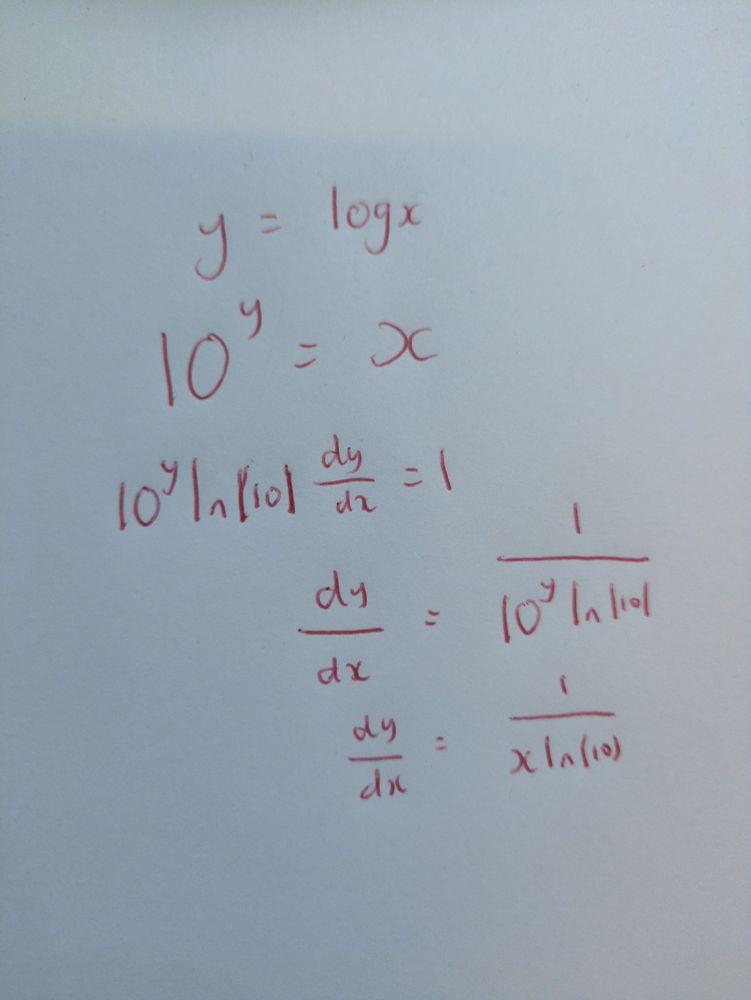 y = logx
10^y = x
10^y ln|10| dy/dx = 1
dy/dx = 1/(10^y ln|10|)
dy/dx = 1/(x ln(10))